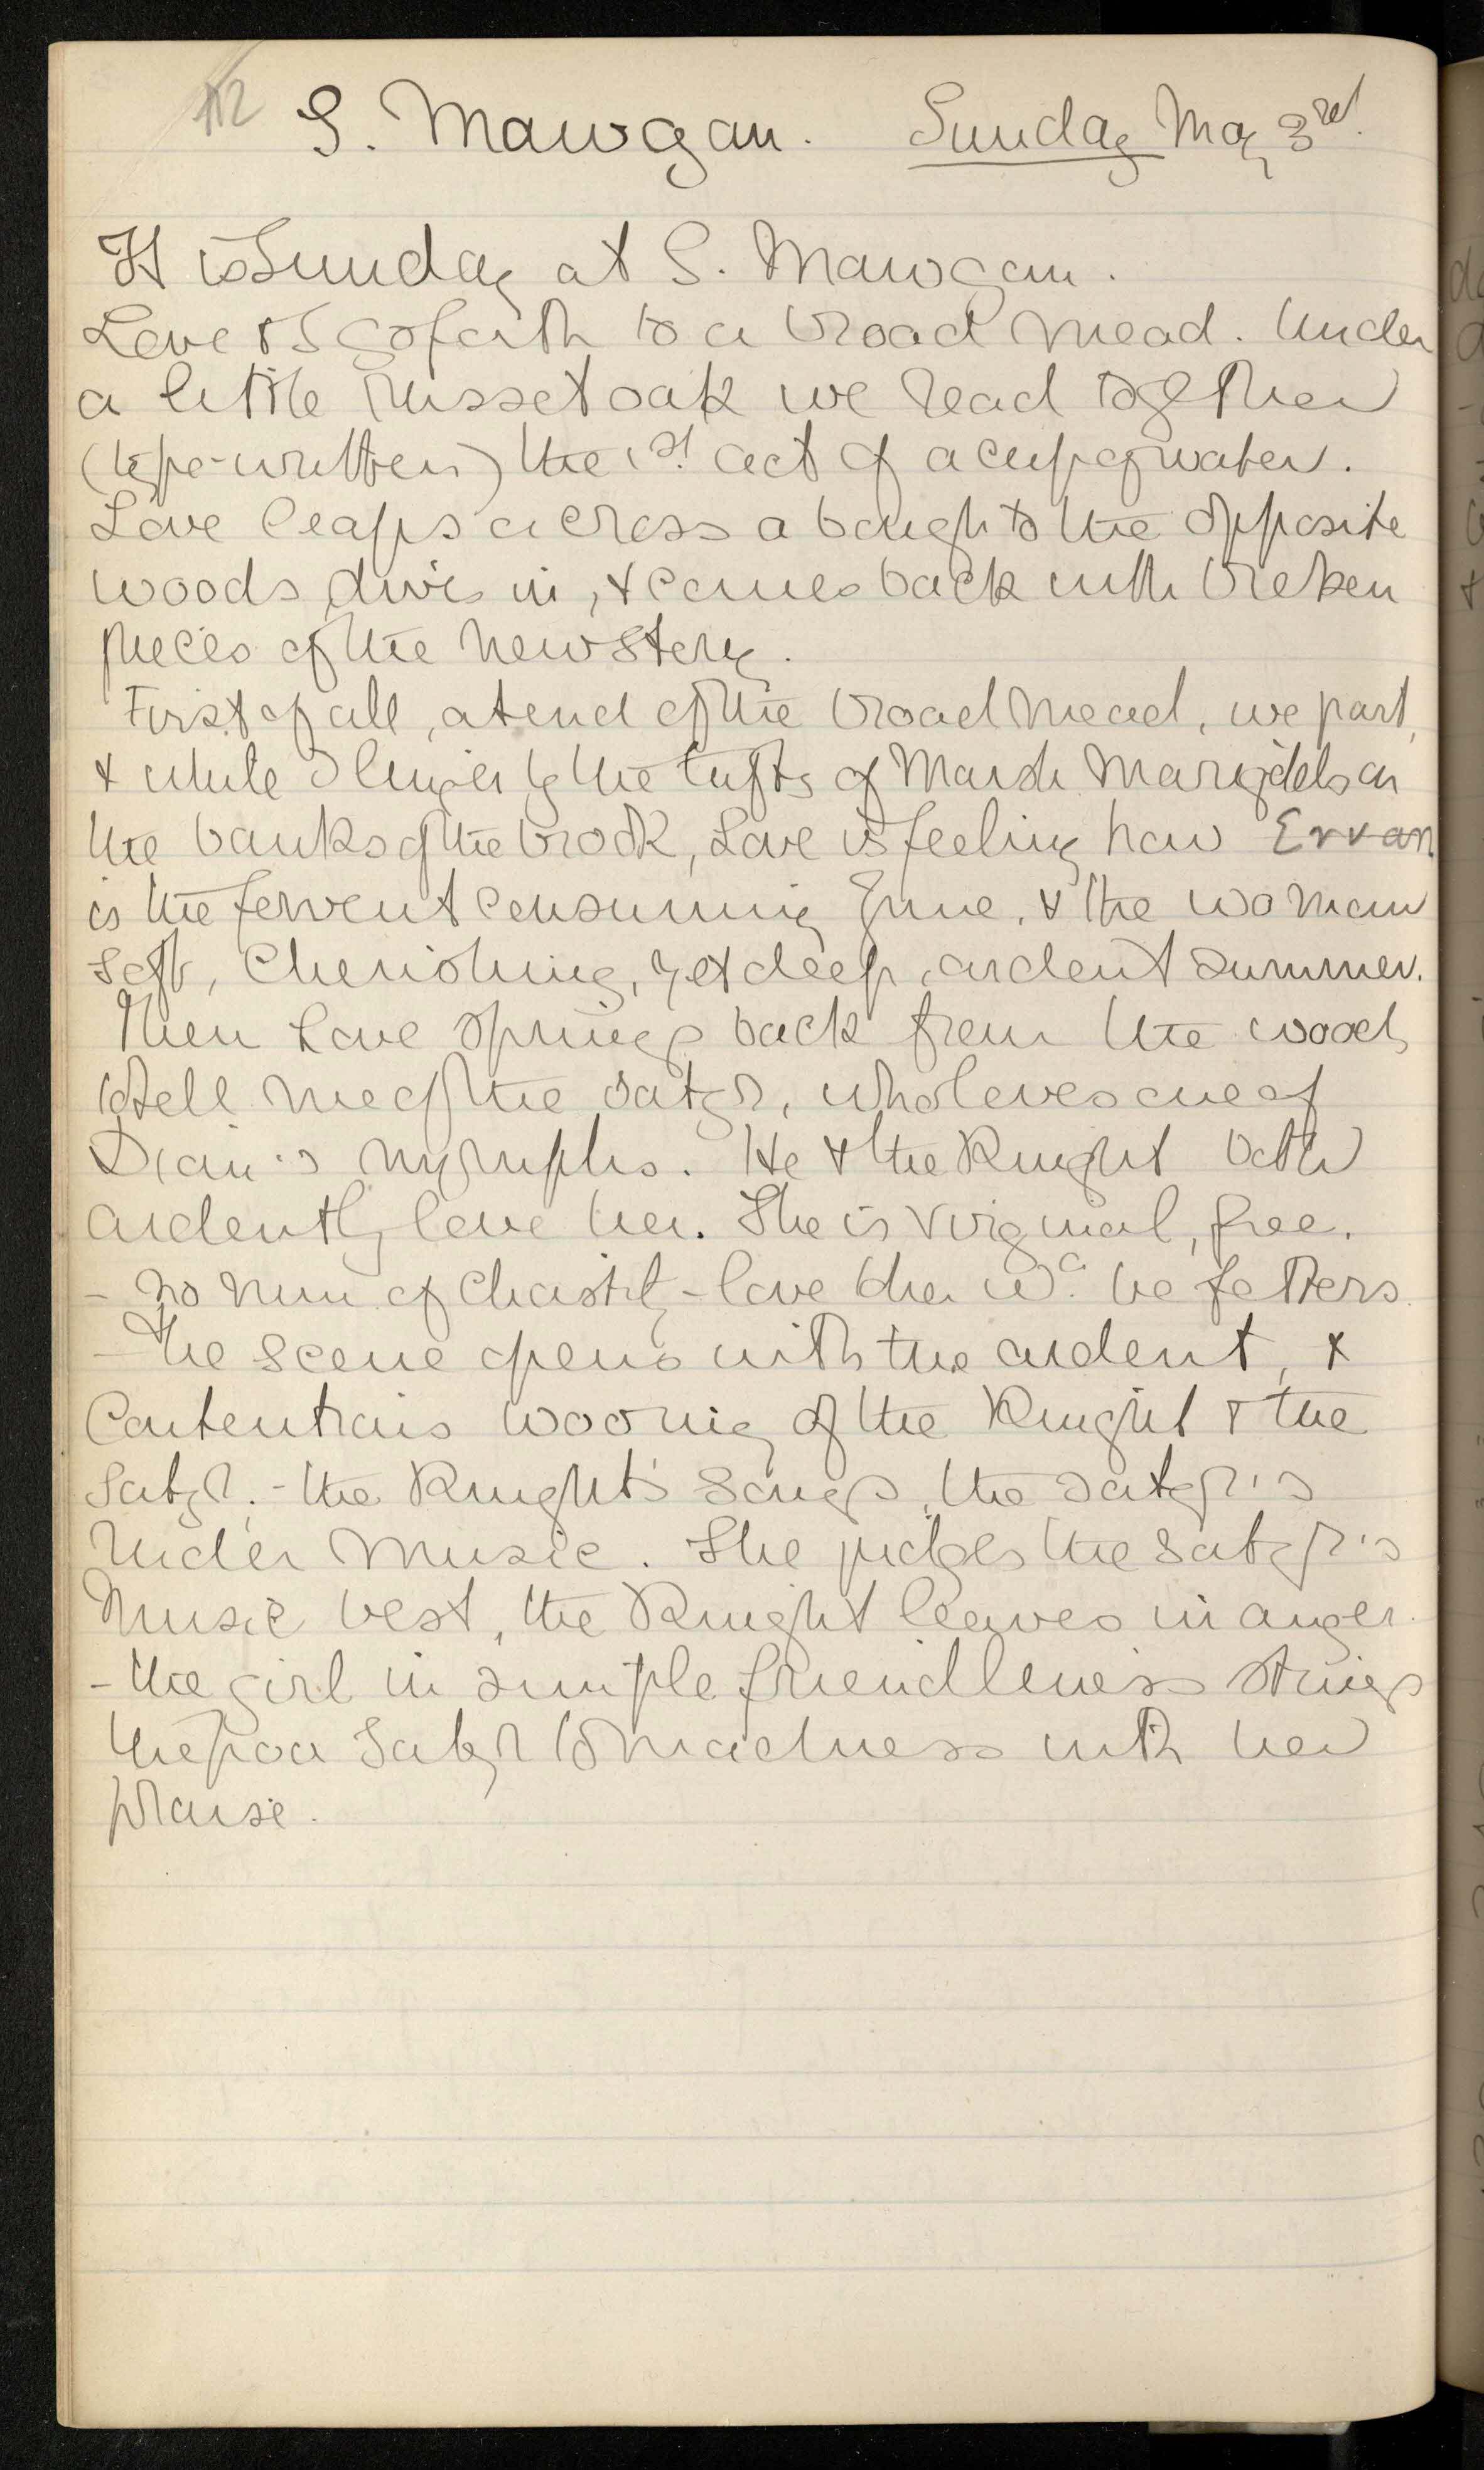 112 S. Mawgan. Sunday May 3rd.
It is Sunday at S. Mawgan.
Love & I go forth to a broad mead. Under
a little russet oak we read together
(type-written) the 1st. act of a cup of water.
Love leaps across a bough to the opposite
woods, dives in, & comes back with broken
pieces of the new story.
First of all, at end of the broad mead, we part,
& while I linger by the tufts of Marsh Marigolds on
the banks of the brook, Love is feeling how
is the fervent consuming June, & the woman
soft, cherishing, yet deep, ardent summer.
Then Love springs back from the wood,
to tell me of the satyr, who loves one of
Dian's nymphs. He & the Knight both
ardently love her. She is virginal, free.
- no nun of chastity - love to her wd. be fetters.
- The scene opens with the ardent, &
contentious wooing of the Knight & the
Satyr. - the Knight's songs, the satyr's
under music. She judges the satyr's
music best, the Knight leaves in anger.
- the girl in simple friendliness stings
the poor Satyr to madness with her
praise.